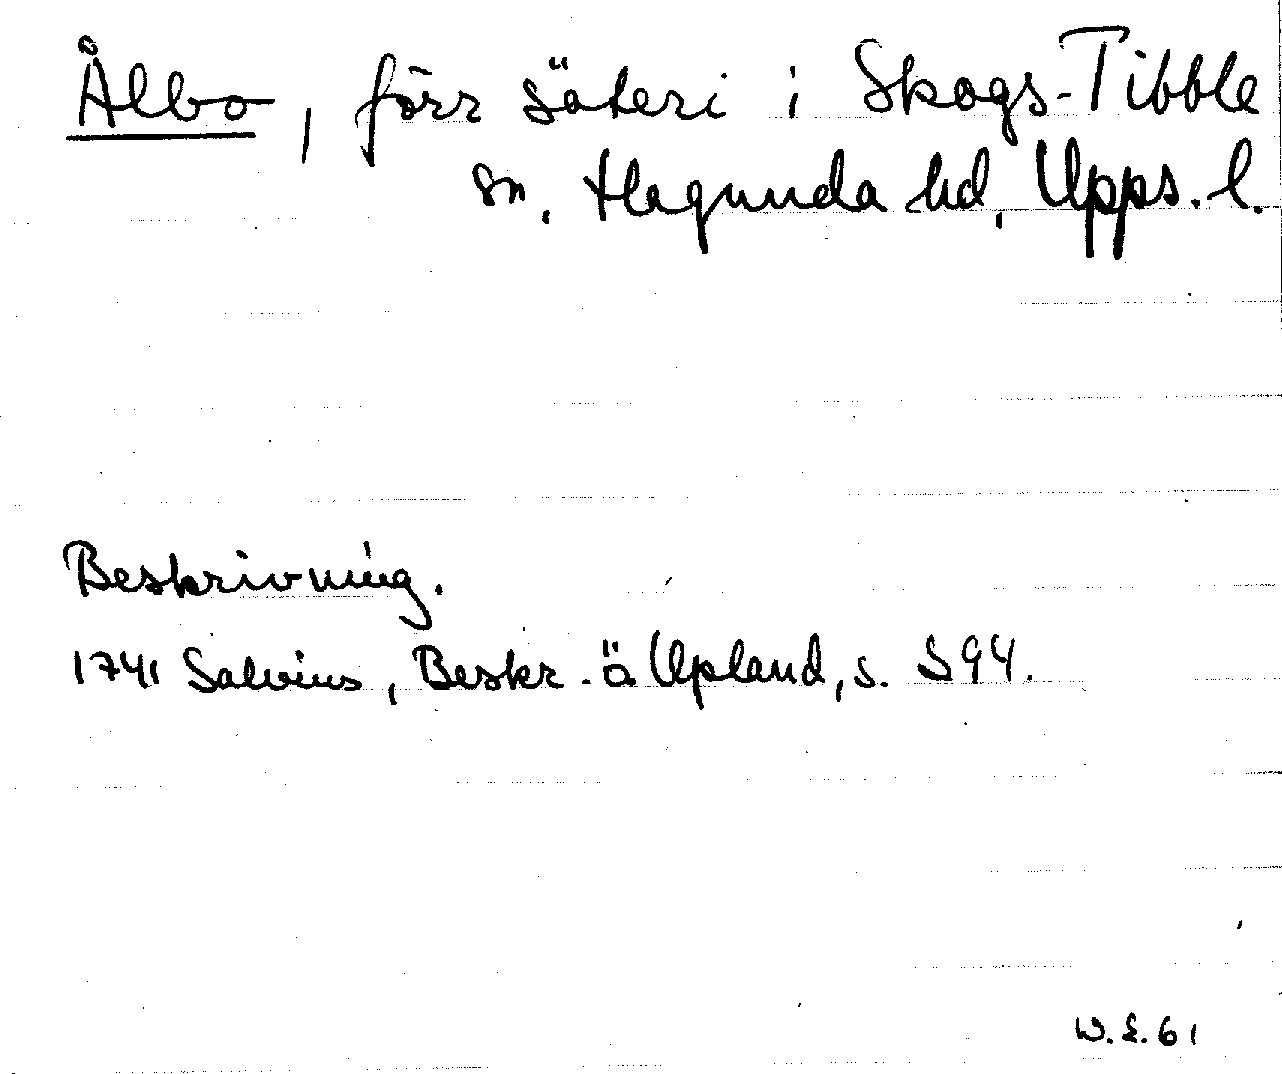 Ålbo, förr säteri i Skogs-Tibble
sn. Hagunda hd, Upps. l.
Beskrivning.
1741 Salvius, Beskr. ö Upland, s. 594.
W.L.61